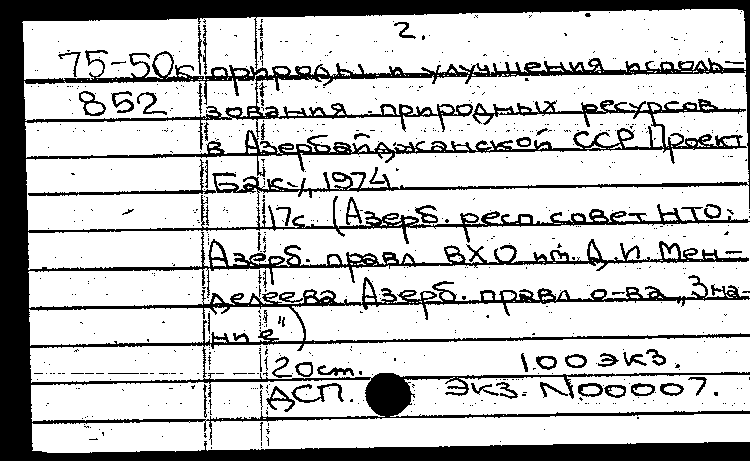 2.
75-50к природы и улучшения исполь-
852 зования природных ресурсов
в Азербайджанской ССР Проект
Баку, 1974.
17с. (Азерб. респ. совет НТО;
Азерб. правл. ВХО им. Д. И. Мен-
делеева. Азерб. правл. о-ва „Зна-
ние")
20см. 100 экз.
ДСП. Экз. N00007.